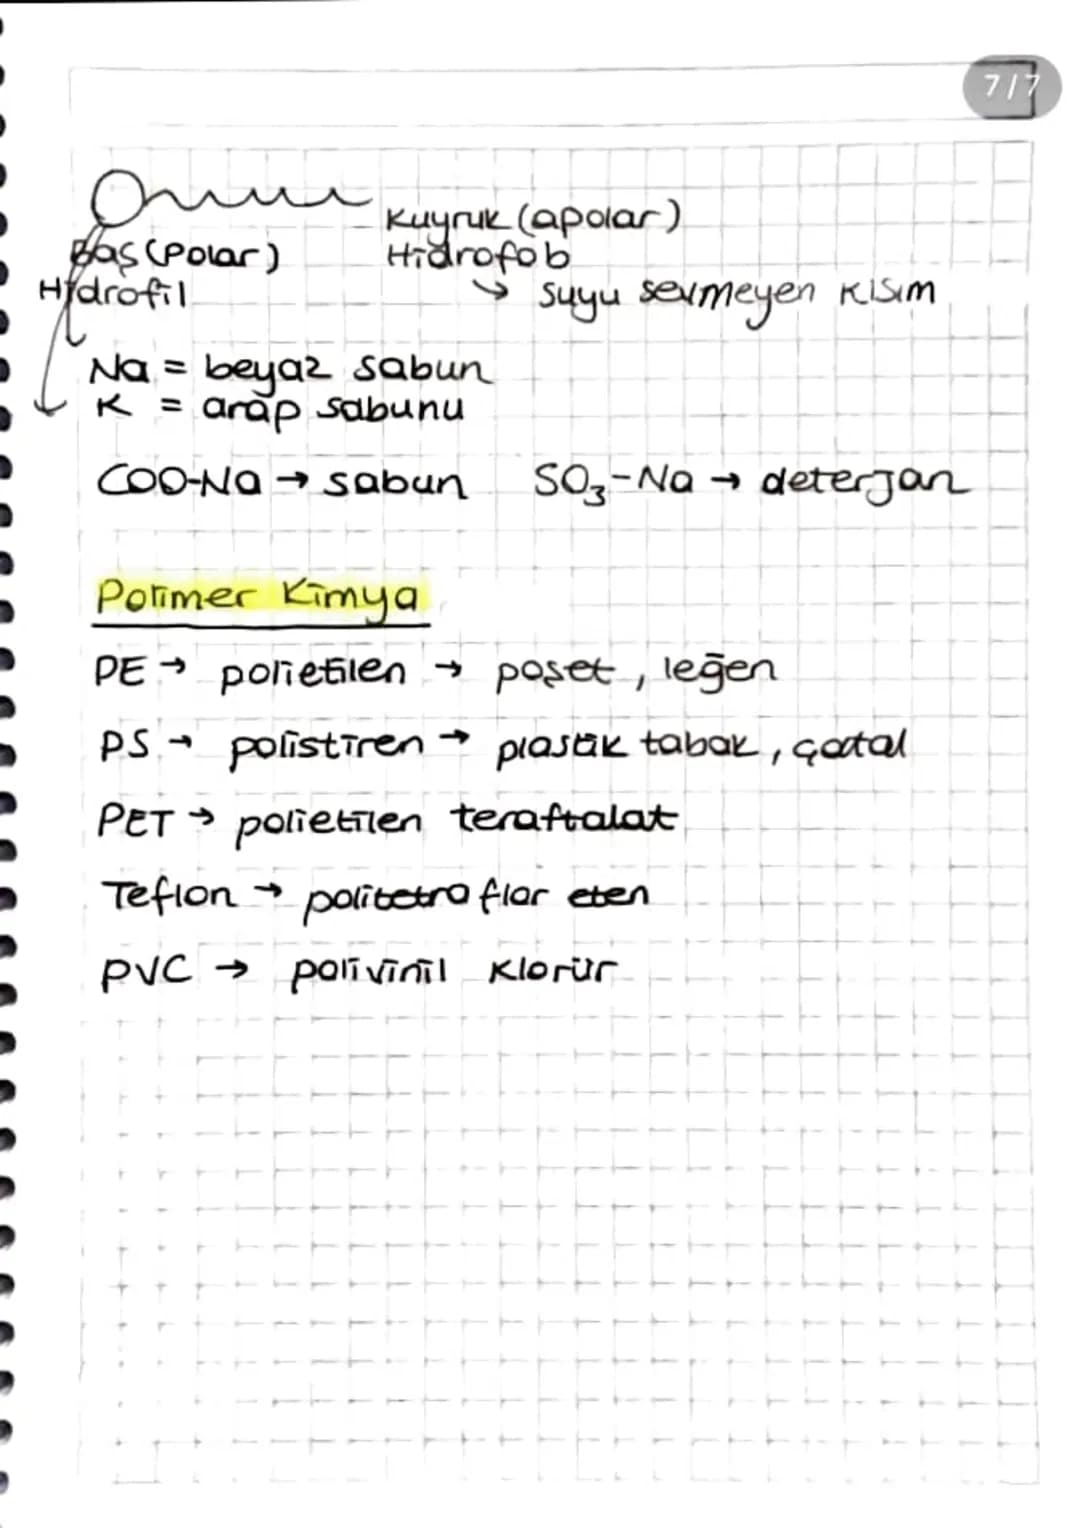 7/7
Kuyruk (apolar)
Baş (Polar)
Hidrofob
Hidrofil
→ suyu sevmeyen kısım
Na = beyaz sabun
K = arap sabunu
COO-Na → sabun SO₃-Na → deterjan
Polimer Kimya
PE → polietilen → poşet, leğen
PS → polistiren → plastik tabak, çatal
PET → polietilen teraftalat
Teflon → politetra flor eten
PVC → polivinil klorür